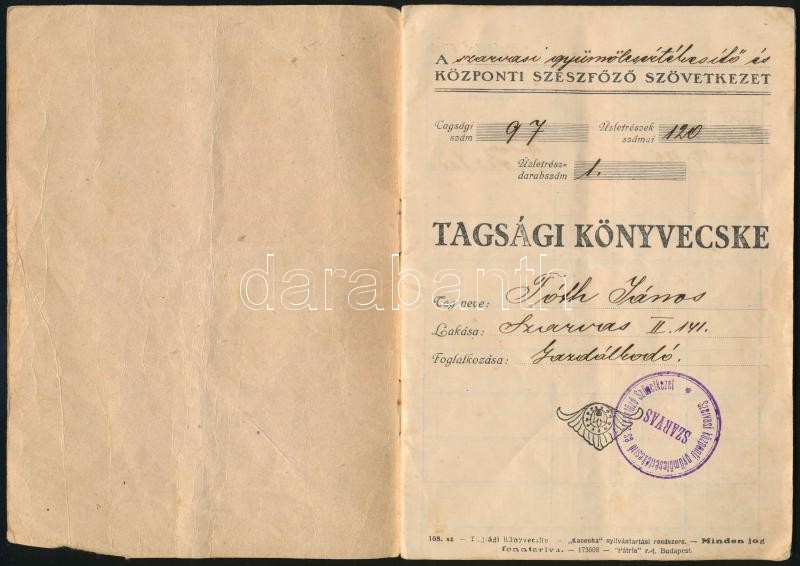 A szarvasi gyümölcsértékesítő és
KÖZPONTI SZESZFŐZŐ SZÖVETKEZET
Tagsági szám 97 Üzletrészek számai 120
Üzletrész-darabszám 1.
TAGSÁGI KÖNYVECSKE
darabanth
Tag neve: Tóth János
Lakása: Szarvas II. 141.
Foglalkozása: Gazdálkodó.
Szarvasi központi gyümölcsértékesítő és szeszfőző Szövetkezet
SZARVAS
108. sz — Tagsági Könyvecske — „Kacenka" nyilvántartási rendszere. — Minden jog
fenntartva. — 173608 — "Pátria" r.-t. Budapest.